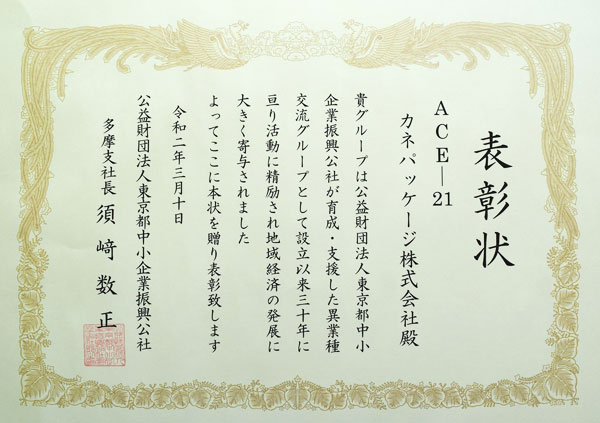 表彰状
ACE―21
カネパッケージ株式会社殿
貴グループは公益財団法人東京都中小
企業振興公社が育成・支援した異業種
交流グループとして設立以来三十年に
亘り活動に精励され地域経済の発展に
大きく寄与されました
よってここに本状を贈り表彰致します
令和二年三月十日
公益財団法人東京都中小企業振興公社
多摩支社長 須﨑数正